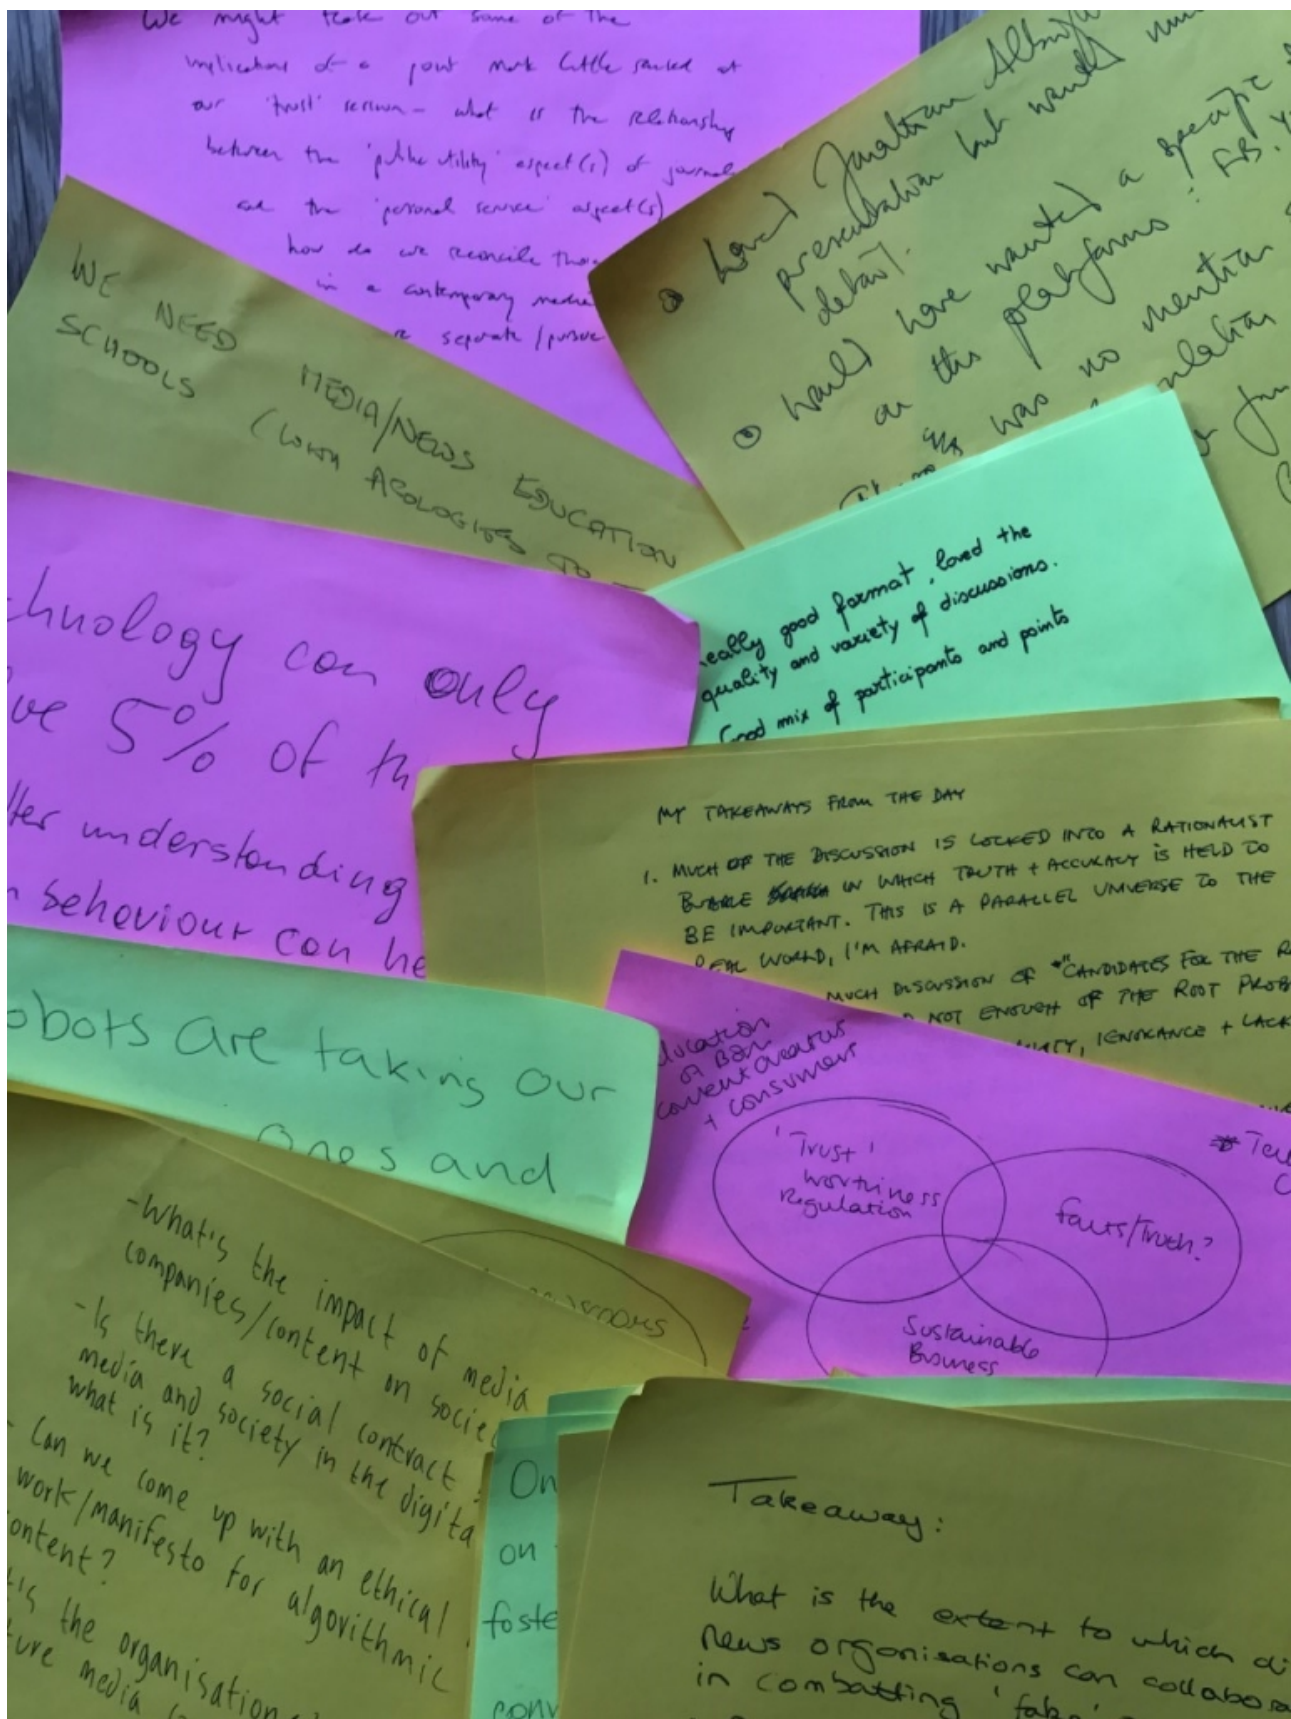 We might tease out some of the
implications of a point Mark Little raised at
our 'trust' session – what is the relationship
between the 'public utility' aspect(s) of journal
and the 'personal service' aspect(s)
how do we reconcile those
in a contemporary media
separate / pursue
Loved Jonathan Albright
presentation but wanted
detail.
Would have wanted a specific
on the platforms : FB. Y
was no mention
WE NEED MEDIA/NEWS EDUCATION
SCHOOLS (WITH APOLOGIES TO
eally good format, loved the
quality and variety of discussions.
Good mix of participants and points
chnology can only
ve 5% of th
tter understanding
n behaviour can he
MY TAKEAWAYS FROM THE DAY
1. MUCH OF THE DISCUSSION IS LOCKED INTO A RATIONALIST
BUBBLE IN WHICH TRUTH + ACCURACY IS HELD TO
BE IMPORTANT. THIS IS A PARALLEL UNIVERSE TO THE
REAL WORLD, I'M AFRAID.
MUCH DISCUSSION OF "CANDIDATES FOR THE R
NOT ENOUGH OF THE ROOT PROB
IGNORANCE + LACK
obots are taking our
ones and
ducation
of Both
content creators
+ consumers
'Trust'
worthiness
Regulation
facts/Truth?
Sustainable
Business
- What's the impact of media
companies/content on socie
- Is there a social contract
media and society in the digita
what is it?
- Can we come up with an ethical
work/manifesto for algorithmic
ontent?
t's the organisation
ure media
On
on
foste
conv
Takeaway:
What is the extent to which di
news organisations can collabora
in combatting 'fake'